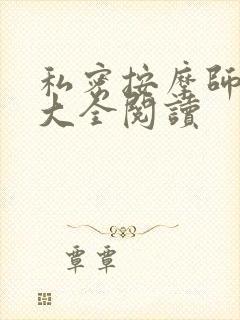 私密按摩師
大全閱讀
覃覃